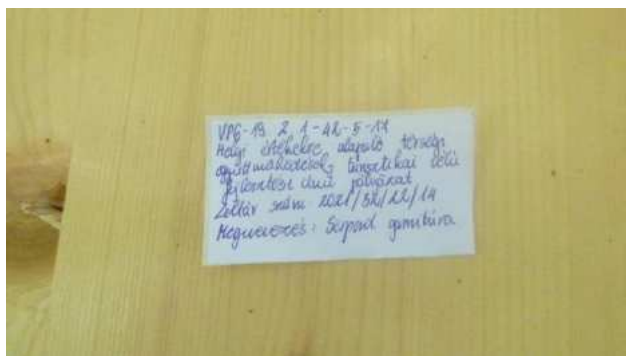 VP6-19.2.1-42-5-17
Helyi értékekre alapuló térségi
együttműködések, turisztikai célú
fejlesztése című pályázat
Leltár szám: 2021/32/22/14
Megnevezés: Sörpad garnitúra